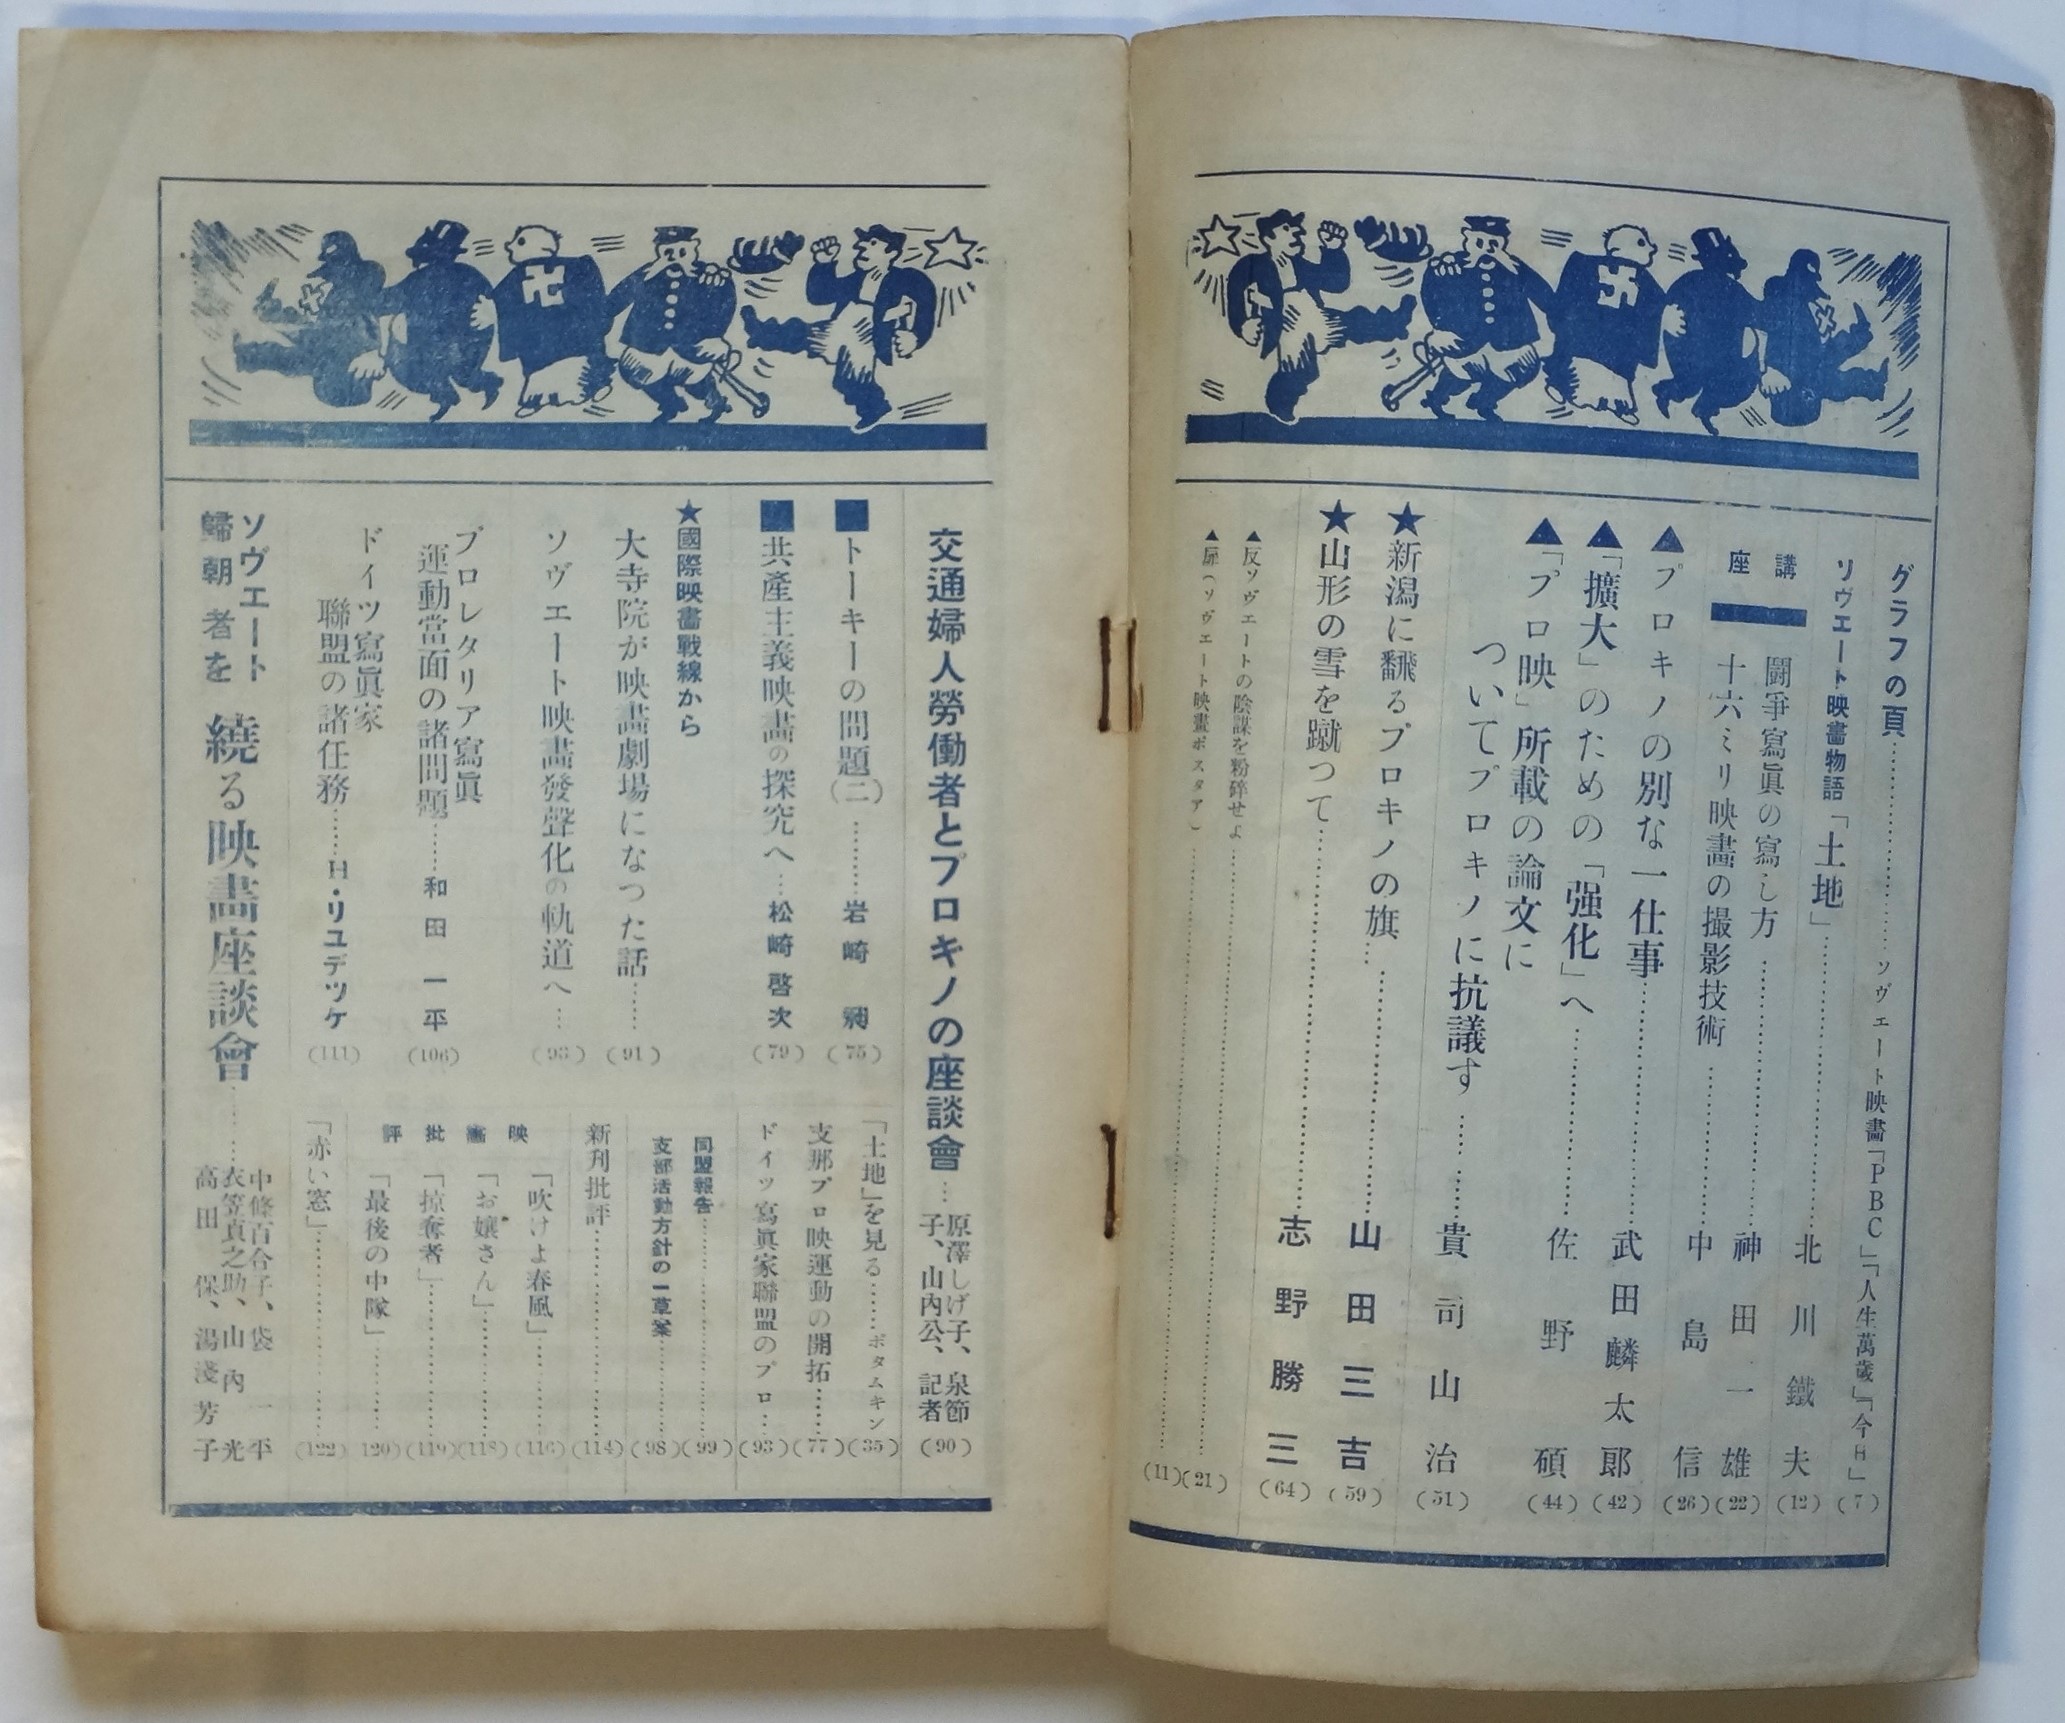 グラフの頁……………ソヴェート映畫「PBC」「人生萬歲」「今日」(7)
ソヴエート映畫物語「土地」……………北川鐵夫(12)
講座
鬪爭寫眞の寫し方……………神田一雄(22)
十六ミリ映畫の撮影技術……………中島信(26)
▲プロキノの別な一仕事……………武田麟太郎(42)
▲「擴大」のための「强化」へ……………佐野碩(44)
▲「プロ映」所載の論文に
ついてプロキノに抗議す……………貴司山治(51)
★新潟に飜るプロキノの旗……………山田三吉(59)
★山形の雪を蹴つて……………志野勝三(64)
▲反ソヴエートの陰謀を粉碎せよ……………(21)
▲扉(ソヴエート映畫ポスタア)……………(11)
交通婦人勞働者とプロキノの座談會…原澤しげ子、泉節
子、山內公、記者(90)
■トーキーの問題(二)………岩崎昶(75)
■共產主義映畫の探究へ…松崎啓次(79)
★國際映畫戰線から
大寺院が映畫劇場になつた話……(91)
ソヴエート映畫發聲化の軌道へ…(93)
プロレタリア寫眞
運動當面の諸問題……和田一平(106)
ドイツ寫眞家
聯盟の諸任務……H・リユデツケ(111)
「土地」を見る……ポタムキン(35)
支那プロ映運動の開拓……(77)
ドイツ寫眞家聯盟のプロ…(93)
同盟報告……………(99)
支部活動方針の一草案……(98)
新刊批評……………(114)
映畫批評
「吹けよ春風」……………(116)
「お孃さん」……………(118)
「掠奪者」……………(119)
「最後の中隊」……………(120)
「赤い窓」……………(122)
ソヴエート
歸朝者を
繞る映畫座談會……
中條百合子、袋一平
衣笠貞之助、山內光
高田保、湯淺芳子